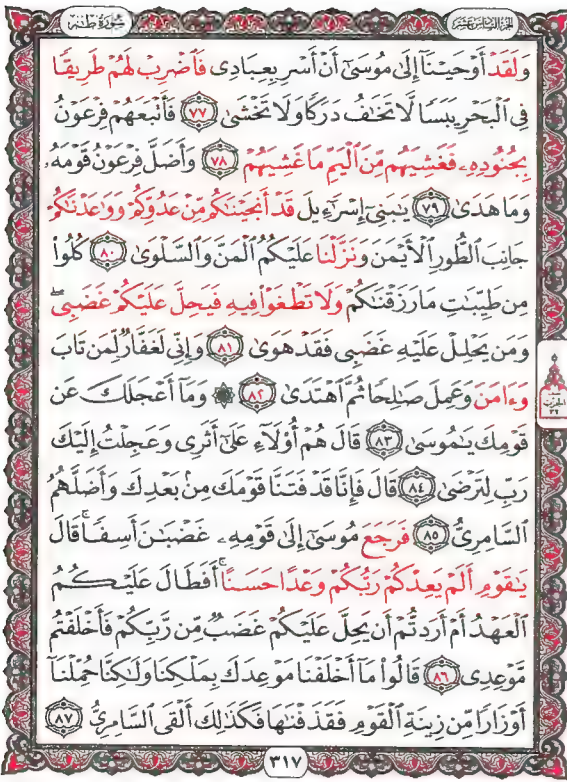 سُورَةُ طٰهٰ
الجزء السادس عشر
وَلَقَدْ أَوْحَيْنَآ إِلَىٰ مُوسَىٰٓ أَنْ أَسْرِ بِعِبَادِى فَٱضْرِبْ لَهُمْ طَرِيقًا
فِى ٱلْبَحْرِ يَبَسًا لَّا تَخَـٰفُ دَرَكًا وَلَا تَخْشَىٰ ٧٧ فَأَتْبَعَهُمْ فِرْعَوْنُ
بِجُنُودِهِۦ فَغَشِيَهُم مِّنَ ٱلْيَمِّ مَا غَشِيَهُمْ ٧٨ وَأَضَلَّ فِرْعَوْنُ قَوْمَهُۥ
وَمَا هَدَىٰ ٧٩ يَـٰبَنِىٓ إِسْرَٰٓءِيلَ قَدْ أَنجَيْنَـٰكُم مِّنْ عَدُوِّكُمْ وَوَٰعَدْنَـٰكُمْ
جَانِبَ ٱلطُّورِ ٱلْأَيْمَنَ وَنَزَّلْنَا عَلَيْكُمُ ٱلْمَنَّ وَٱلسَّلْوَىٰ ٨٠ كُلُوا۟
مِن طَيِّبَـٰتِ مَا رَزَقْنَـٰكُمْ وَلَا تَطْغَوْا۟ فِيهِ فَيَحِلَّ عَلَيْكُمْ غَضَبِى ۖ
وَمَن يَحْلِلْ عَلَيْهِ غَضَبِى فَقَدْ هَوَىٰ ٨١ وَإِنِّى لَغَفَّارٌ لِّمَن تَابَ
وَءَامَنَ وَعَمِلَ صَـٰلِحًا ثُمَّ ٱهْتَدَىٰ ٨٢ ۞ وَمَآ أَعْجَلَكَ عَن
قَوْمِكَ يَـٰمُوسَىٰ ٨٣ قَالَ هُمْ أُو۟لَآءِ عَلَىٰٓ أَثَرِى وَعَجِلْتُ إِلَيْكَ
رَبِّ لِتَرْضَىٰ ٨٤ قَالَ فَإِنَّا قَدْ فَتَنَّا قَوْمَكَ مِنۢ بَعْدِكَ وَأَضَلَّهُمُ
ٱلسَّامِرِىُّ ٨٥ فَرَجَعَ مُوسَىٰٓ إِلَىٰ قَوْمِهِۦ غَضْبَـٰنَ أَسِفًا ۚ قَالَ
يَـٰقَوْمِ أَلَمْ يَعِدْكُمْ رَبُّكُمْ وَعْدًا حَسَنًا ۚ أَفَطَالَ عَلَيْكُمُ
ٱلْعَهْدُ أَمْ أَرَدتُّمْ أَن يَحِلَّ عَلَيْكُمْ غَضَبٌ مِّن رَّبِّكُمْ فَأَخْلَفْتُم
مَّوْعِدِى ٨٦ قَالُوا۟ مَآ أَخْلَفْنَا مَوْعِدَكَ بِمَلْكِنَا وَلَـٰكِنَّا حُمِّلْنَآ
أَوْزَارًا مِّن زِينَةِ ٱلْقَوْمِ فَقَذَفْنَـٰهَا فَكَذَٰلِكَ أَلْقَى ٱلسَّامِرِىُّ ٨٧
٣١٧